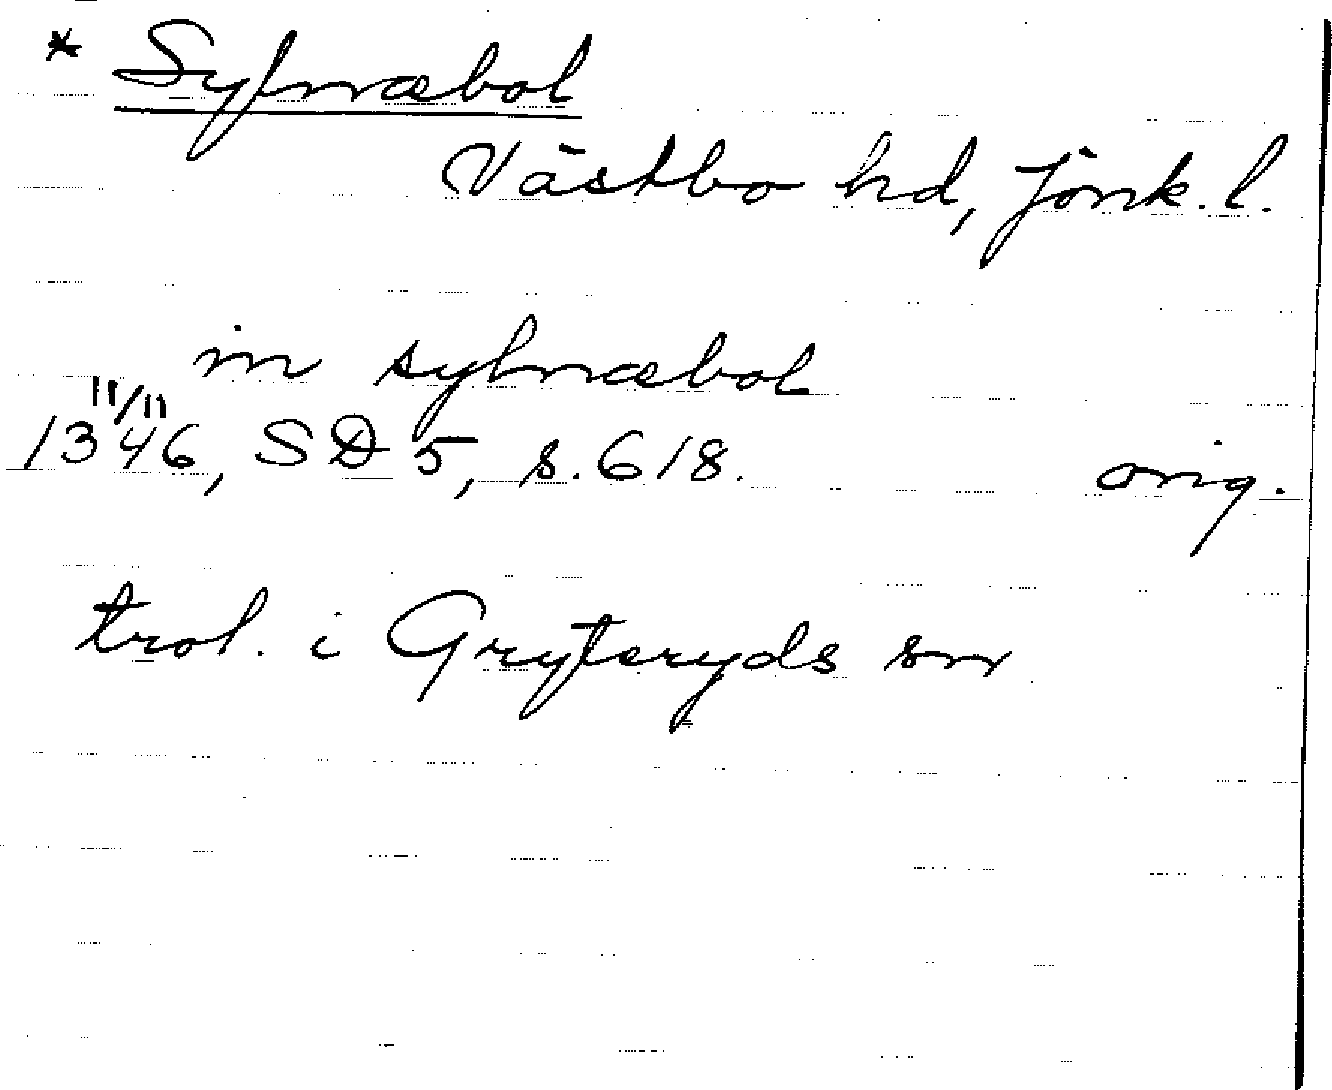 * Sylnæbol
Västbo hd, Jönk. l.
in sylnæbol
11/11
1346, SD 5, s. 618. orig.
trol. i Gryteryds sn